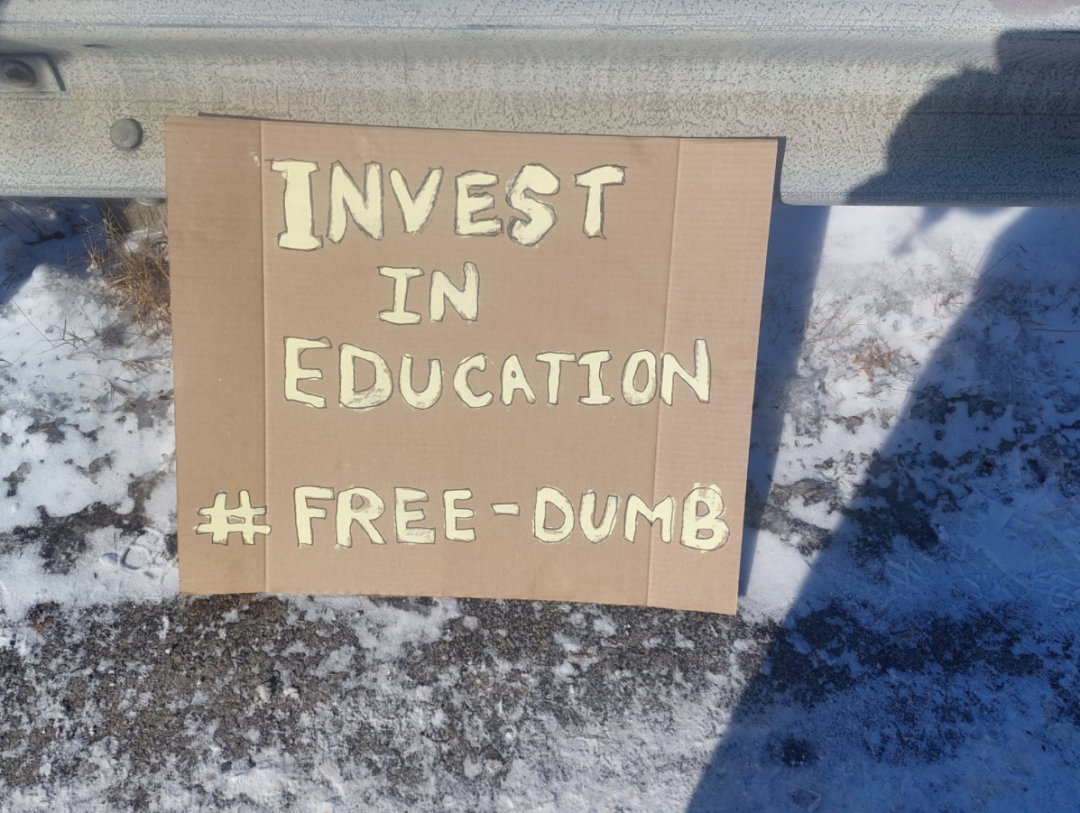 INVEST
IN
EDUCATION
# FREE-DUMB